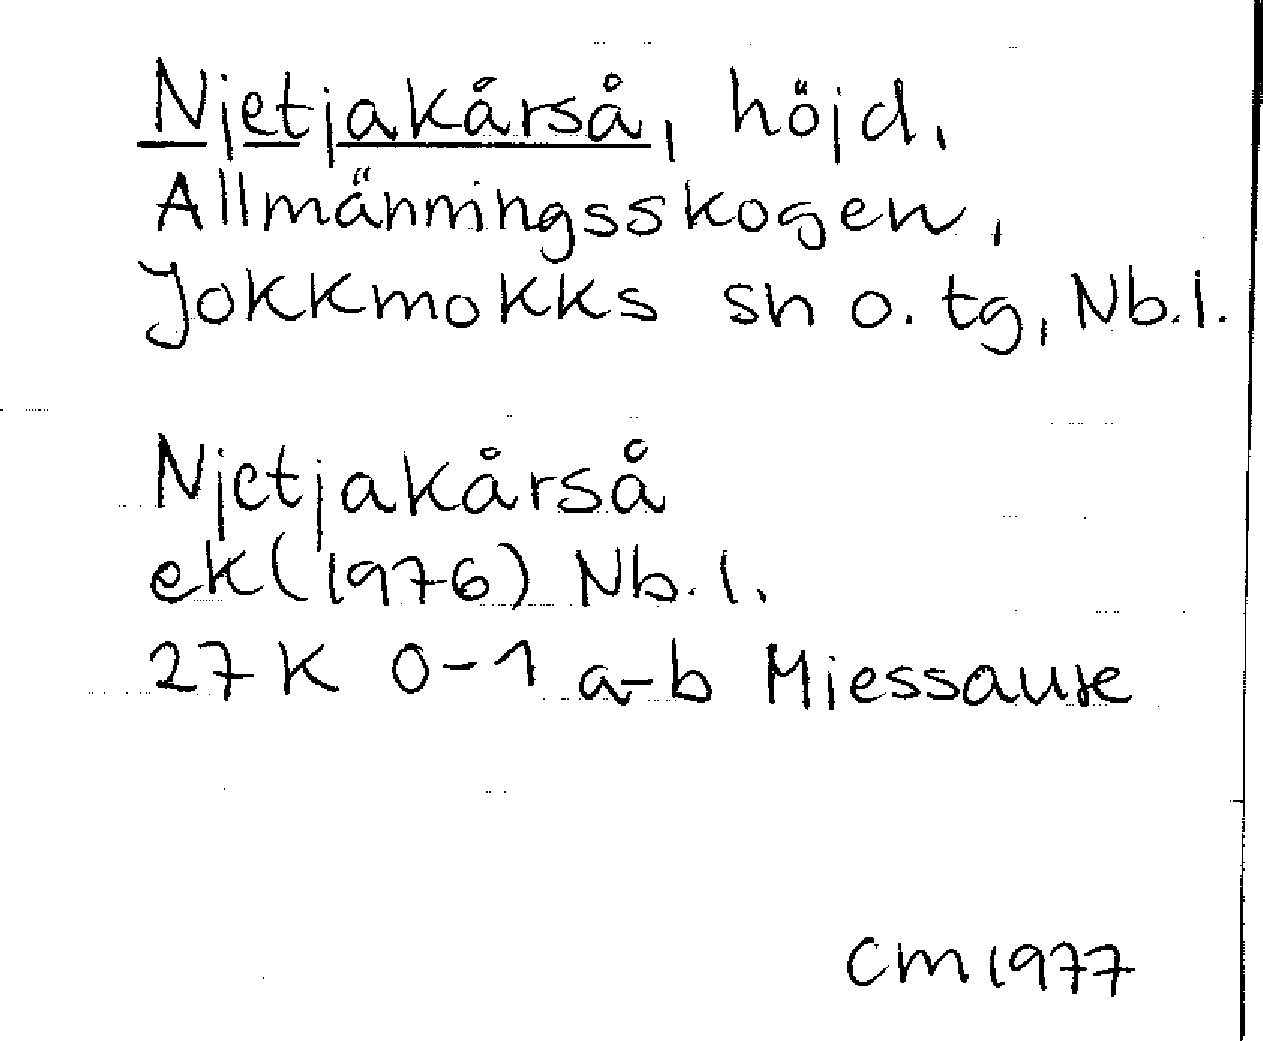 Njetjakårså, höjd,
Allmänningsskogen,
Jokkmokks sn o. tg, Nb.l.
Njetjakårså
ek (1976) Nb.l.
27K 0-1 a-b Miessaure
CM 1977